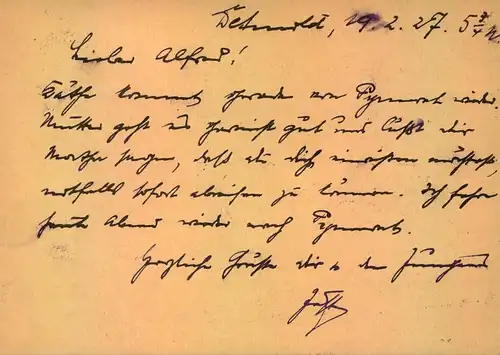 Detmold, 19.2.27. 5 3/4 N
Lieber Alfred!
Käthe kommt gerade von Pyrmont wieder.
Mutter geht es garnicht gut und läßt dir
Martha sagen, daß du dich einrichten möchtest,
notfalls sofort abreisen zu können. Ich fahre
heute Abend wieder nach Pyrmont.
Herzliche Grüße dir u den Jungens